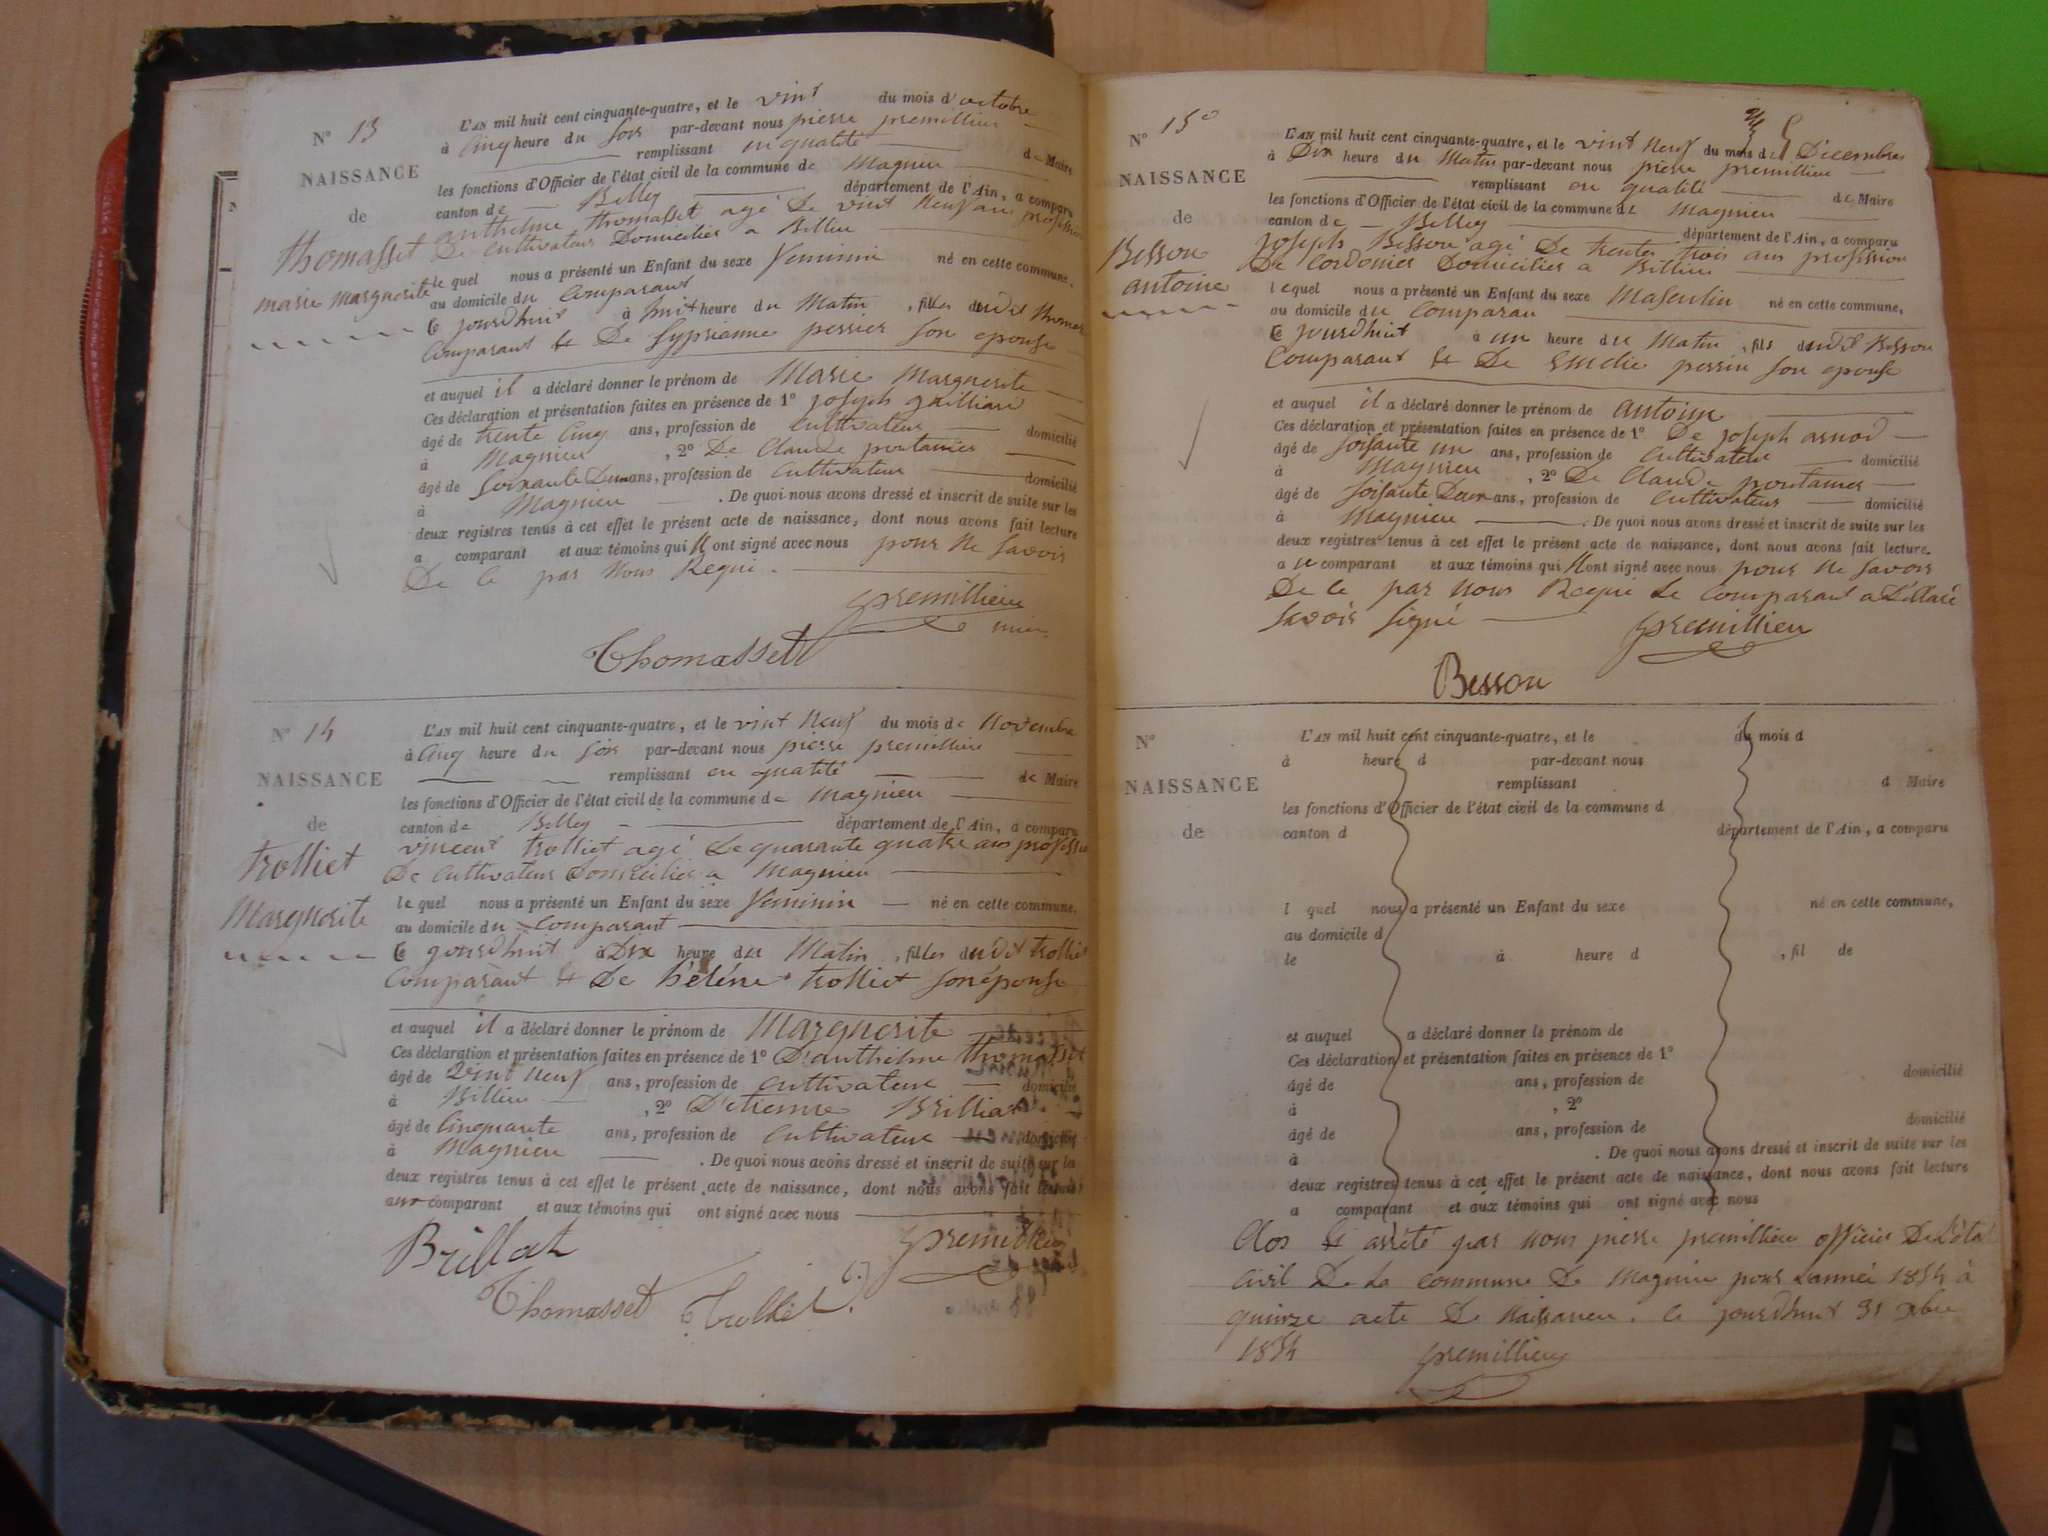 N° 13
NAISSANCE
de
thomasset
marie marguerite
L'AN mil huit cent cinquante-quatre, et le vint du mois d'octobre
à Cinq heure du soir par-devant nous pierre premillieu
remplissant en qualité de Maire
les fonctions d'Officier de l'état civil de la commune de Magnieu
canton de Belley département de l'Ain, a comparu
anthelme thomasset agé De vint Neuf ans profession
De Cultivateur Domicilier a Billieu
le quel nous a présenté un Enfant du sexe feminin né en cette commune,
au domicile du Comparant
Ce jourdhuit à huit heure du Matin, filles dudit
Comparant & De Syprienne perrier son epouse
et auquel il a déclaré donner le prénom de Marie Marguerite
Ces déclaration et présentation faites en présence de 1° joseph
âgé de trente Cinq ans, profession de Cultivateur domicilié
à Magnieu, 2° De Claude
âgé de Soixante Deux ans, profession de Cultivateur domicilié
à Magnieu. De quoi nous avons dressé et inscrit de suite sur les
deux registres tenus à cet effet le présent acte de naissance, dont nous avons fait lecture
a comparant et aux témoins qui N ont signé avec nous pour Ne Savoir
De le par Nous Requi.
premillieu
Thomasset
N° 14
NAISSANCE
de
trolliet
Marguerite
L'AN mil huit cent cinquante-quatre, et le vint Neuf du mois de Novembre
à Cinq heure du soir par-devant nous pierre premillieu
remplissant en qualité de Maire
les fonctions d'Officier de l'état civil de la commune de Magnieu
canton de Belley département de l'Ain, a comparu
vincent trolliet agé De quarante quatre ans
De Cultivateur Domicilier a Magnieu
le quel nous a présenté un Enfant du sexe feminin né en cette commune,
au domicile du Comparant
Ce jourdhuit à Dix heure du Matin, filles dudit trolliet
Comparant & De hélène trolliet son épouse
et auquel il a déclaré donner le prénom de Marguerite
Ces déclaration et présentation faites en présence de 1° D'anthelme thomasset
âgé de Vint Neuf ans, profession de Cultivateur domicilié
à Billieu, 2° D'etienne Brillat
âgé de Cinquante ans, profession de Cultivateur domicilié
à Magnieu. De quoi nous avons dressé et inscrit de suite sur les
deux registres tenus à cet effet le présent acte de naissance, dont nous avons fait lecture
aux comparant et aux témoins qui ont signé avec nous
Brillat premillieu
Thomasset Trolliet
N° 15
NAISSANCE
de
Besson
antoine
L'AN mil huit cent cinquante-quatre, et le vint Neuf du mois de Décembre
à Dix heure du Matin par-devant nous pierre premillieu
remplissant en qualité de Maire
les fonctions d'Officier de l'état civil de la commune de Magnieu
canton de Belley département de l'Ain, a comparu
joseph Besson agé De trente trois ans profession
De Cordonier Domicilier a Billieu
lequel nous a présenté un Enfant du sexe Masculin né en cette commune,
au domicile du Comparan
Ce jourdhuit à un heure du Matin, fils dudit Besson
Comparant & De Emelie perrin son epouse
et auquel il a déclaré donner le prénom de antoine
Ces déclaration et présentation faites en présence de 1° De joseph arnod
âgé de soisante un ans, profession de Cultivateur domicilié
à Magnieu, 2° De Claude
âgé de soisante Deux ans, profession de Cultivateur domicilié
à Magnieu. De quoi nous avons dressé et inscrit de suite sur les
deux registres tenus à cet effet le présent acte de naissance, dont nous avons fait lecture.
a le comparant et aux témoins qui N ont signé avec nous pour Ne Savoir
De le par Nous Requi Le Comparant a Déllaré
savoir signé premillieu
Besson
N°
NAISSANCE
de
L'AN mil huit cent cinquante-quatre, et le du mois d
à heure d par-devant nous
remplissant d Maire
les fonctions d'Officier de l'état civil de la commune d
canton d département de l'Ain, a comparu
l quel nous a présenté un Enfant du sexe né en cette commune,
au domicile d
le à heure d, fil de
et auquel a déclaré donner le prénom de
Ces déclaration et présentation faites en présence de 1°
âgé de ans, profession de domicilié
à, 2°
âgé de ans, profession de domicilié
à. De quoi nous avons dressé et inscrit de suite sur les
deux registres tenus à cet effet le présent acte de naissance, dont nous avons fait lecture
a comparant et aux témoins qui ont signé avec nous
Clos & arrêté par nous pierre premillieu officier De L'état
Civil De La Commune De Magnieu pour Lanneé 1854 à
quinze acte De Naissance. Ce jourdhuit 31 xbre
1854 premillieu